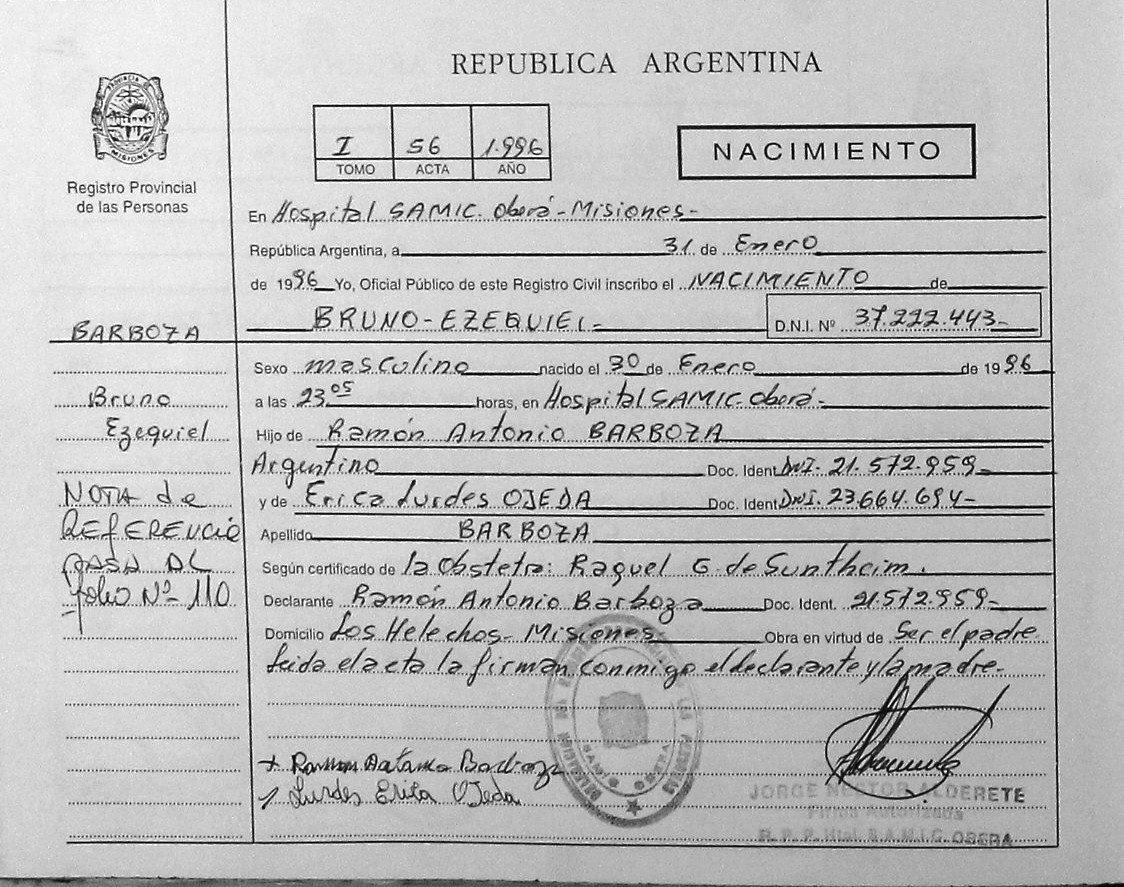 REPUBLICA ARGENTINA
PROVINCIA DE
MISIONES
Registro Provincial
de las Personas
I 56 1.996
TOMO ACTA AÑO
NACIMIENTO
En Hospital SAMIC. Oberá - Misiones-
República Argentina, a 31 de Enero
de 1996 Yo, Oficial Público de este Registro Civil inscribo el NACIMIENTO de
BRUNO-EZEQUIEL- D.N.I. Nº 37.222.443-
Sexo masculino nacido el 30 de Enero de 1996
a las 23.05 horas, en Hospital SAMIC. Oberá-
Hijo de Ramón Antonio BARBOZA
Argentino Doc. Ident. DNI. 21.572.959-
y de Erica Lurdes OJEDA Doc. Ident. DNI. 23.664.694-
Apellido BARBOZA
Según certificado de la Obstetra: Raquel G. de Suntheim.
Declarante Ramón Antonio Barboza Doc. Ident. 21.572.959-
Domicilio Los Helechos- Misiones- Obra en virtud de Ser el padre
Leida el acta la firman conmigo el declarante y la madre-
BARBOZA
Bruno
Ezequiel
NOTA de
REFERENCIA
PASA AL
folio Nº 110
Ramon Antonio Barboza
Lurdes Erica Ojeda
JORGE NESTOR ALDERETE
Firma Autorizada
R. P. P. Htal. S.A.M.I.C. OBERA